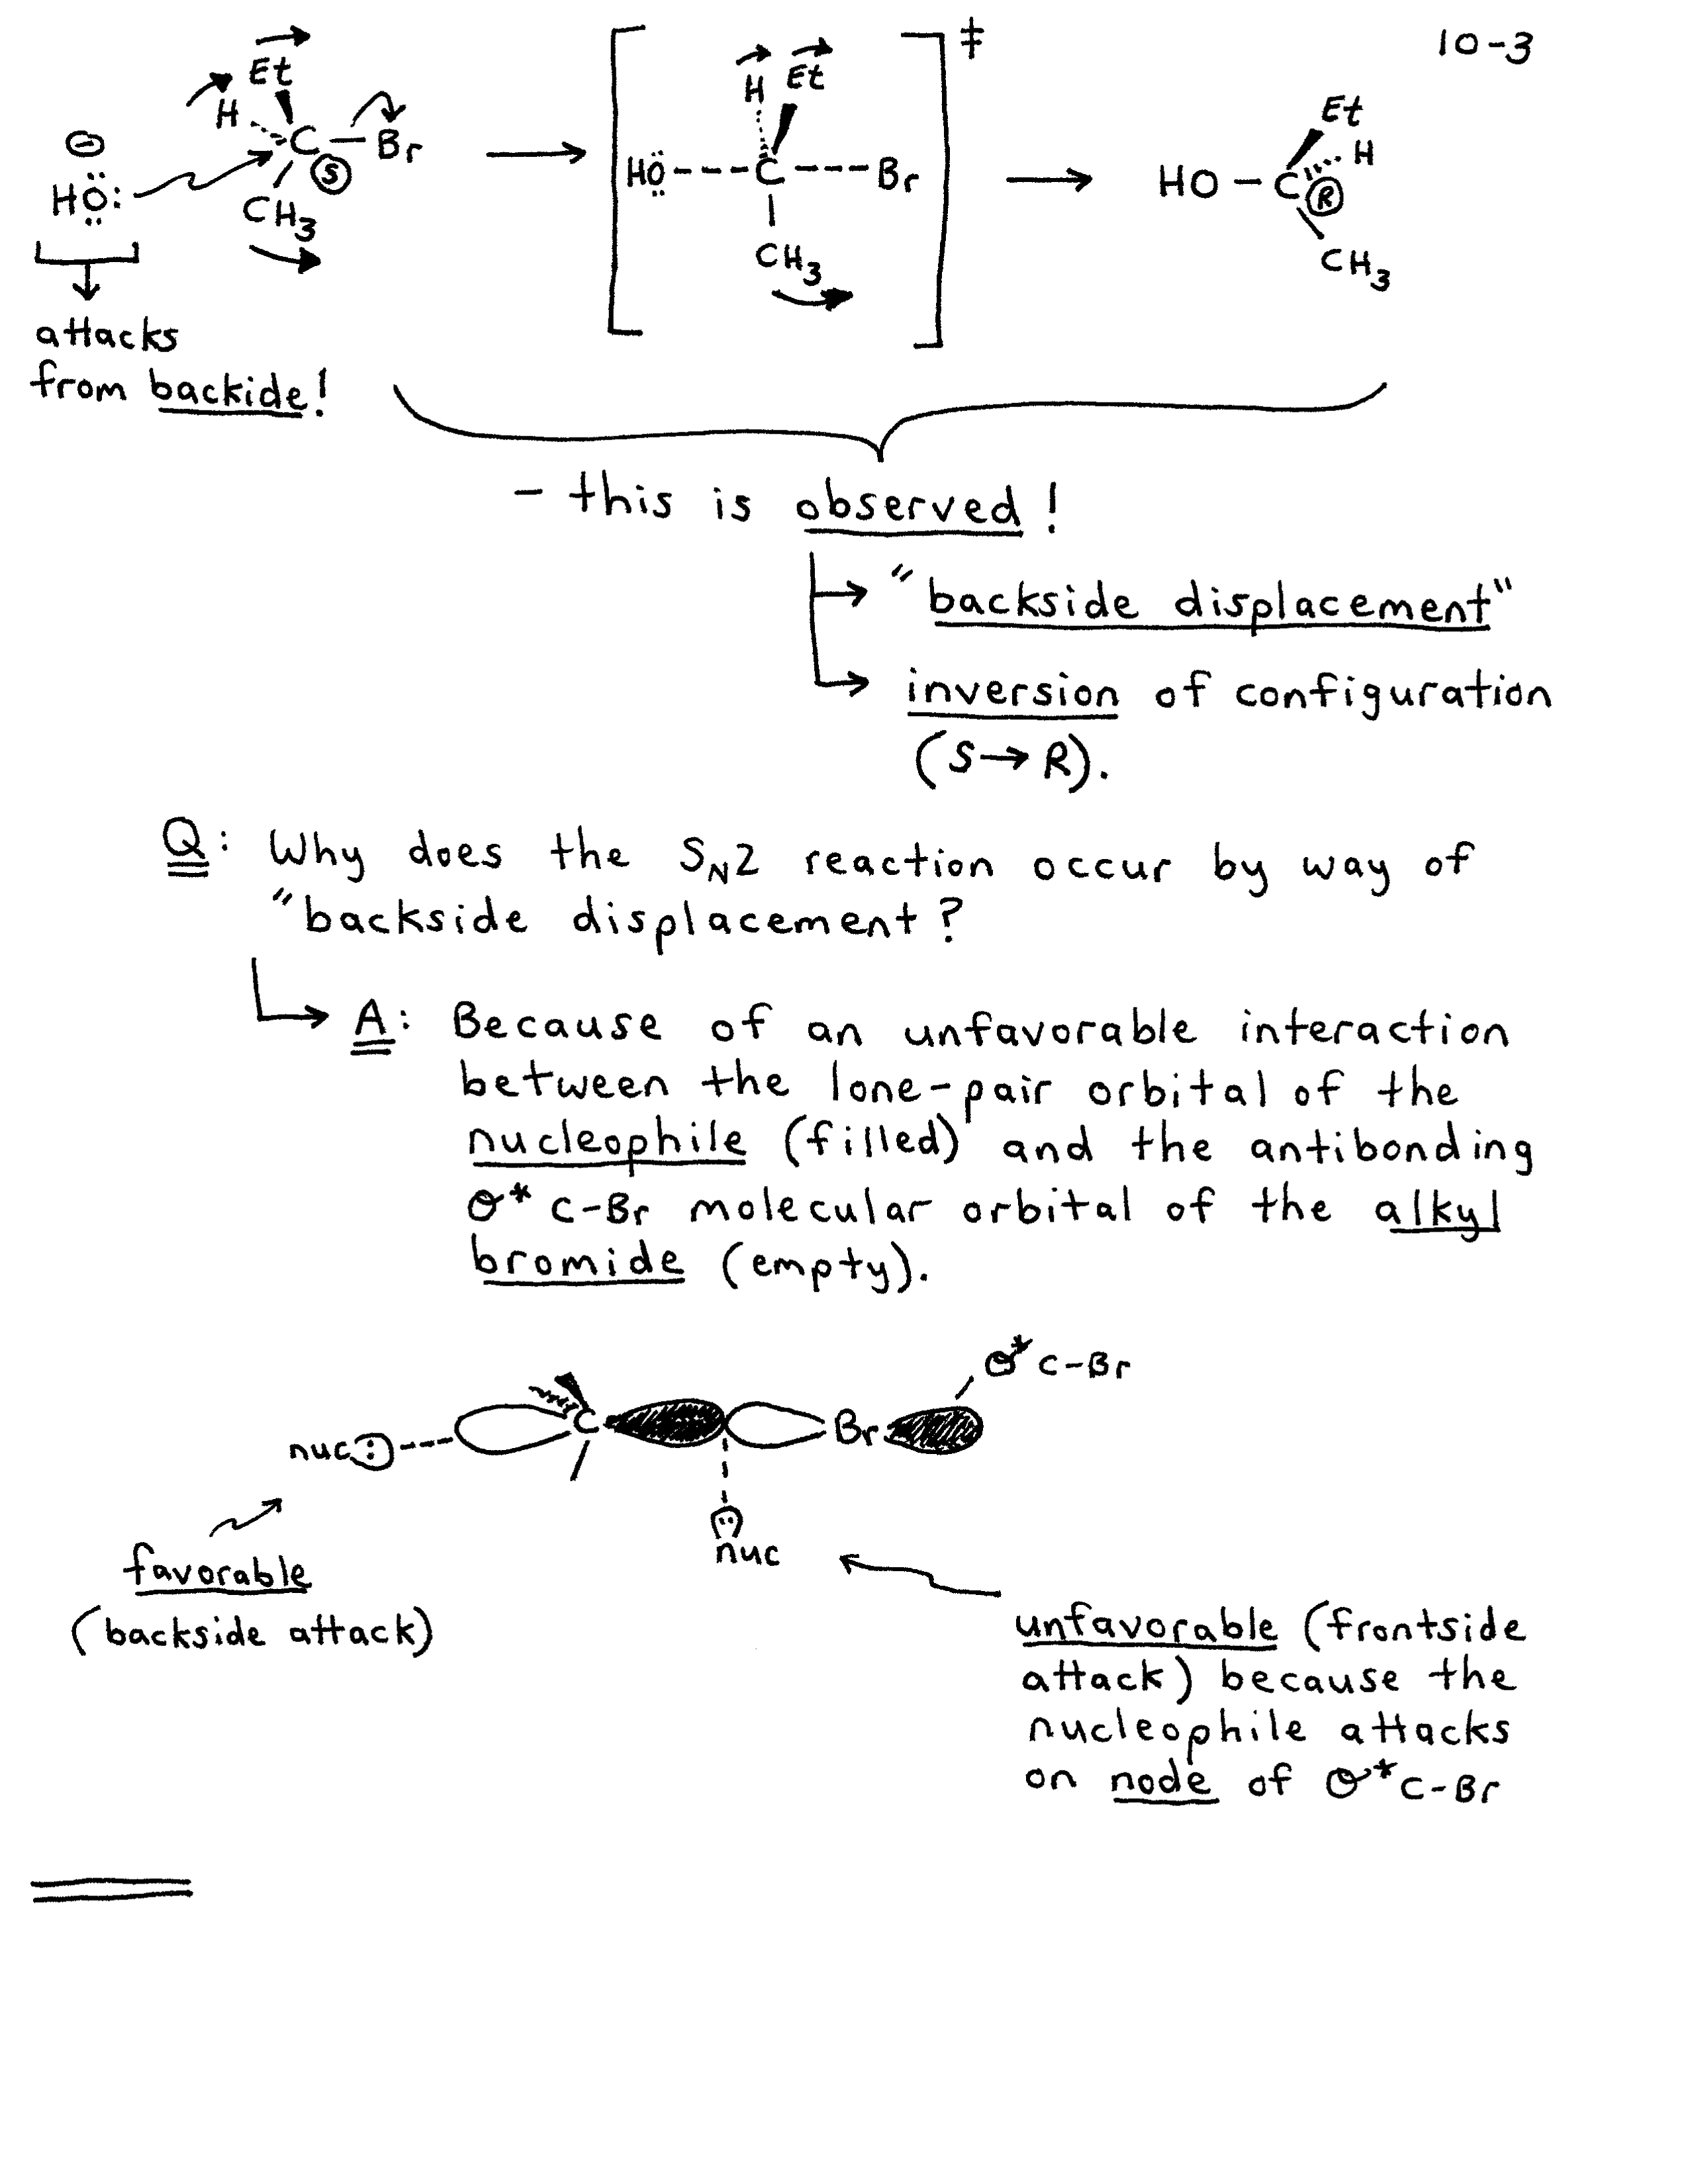 10-3
Et
H
C - Br
S
⊖
HÖ:
CH3
attacks
from backide!
‡
H Et
HÖ --- C --- Br
CH3
Et
H
HO - C
R
CH3
- this is observed!
→ "backside displacement"
→ inversion of configuration
(S → R).
Q: Why does the SN2 reaction occur by way of
"backside displacement?
A: Because of an unfavorable interaction
between the lone-pair orbital of the
nucleophile (filled) and the antibonding
σ* C-Br molecular orbital of the alkyl
bromide (empty).
σ* C-Br
nuc: C Br
nuc
favorable
(backside attack)
unfavorable (frontside
attack) because the
nucleophile attacks
on node of σ* C-Br